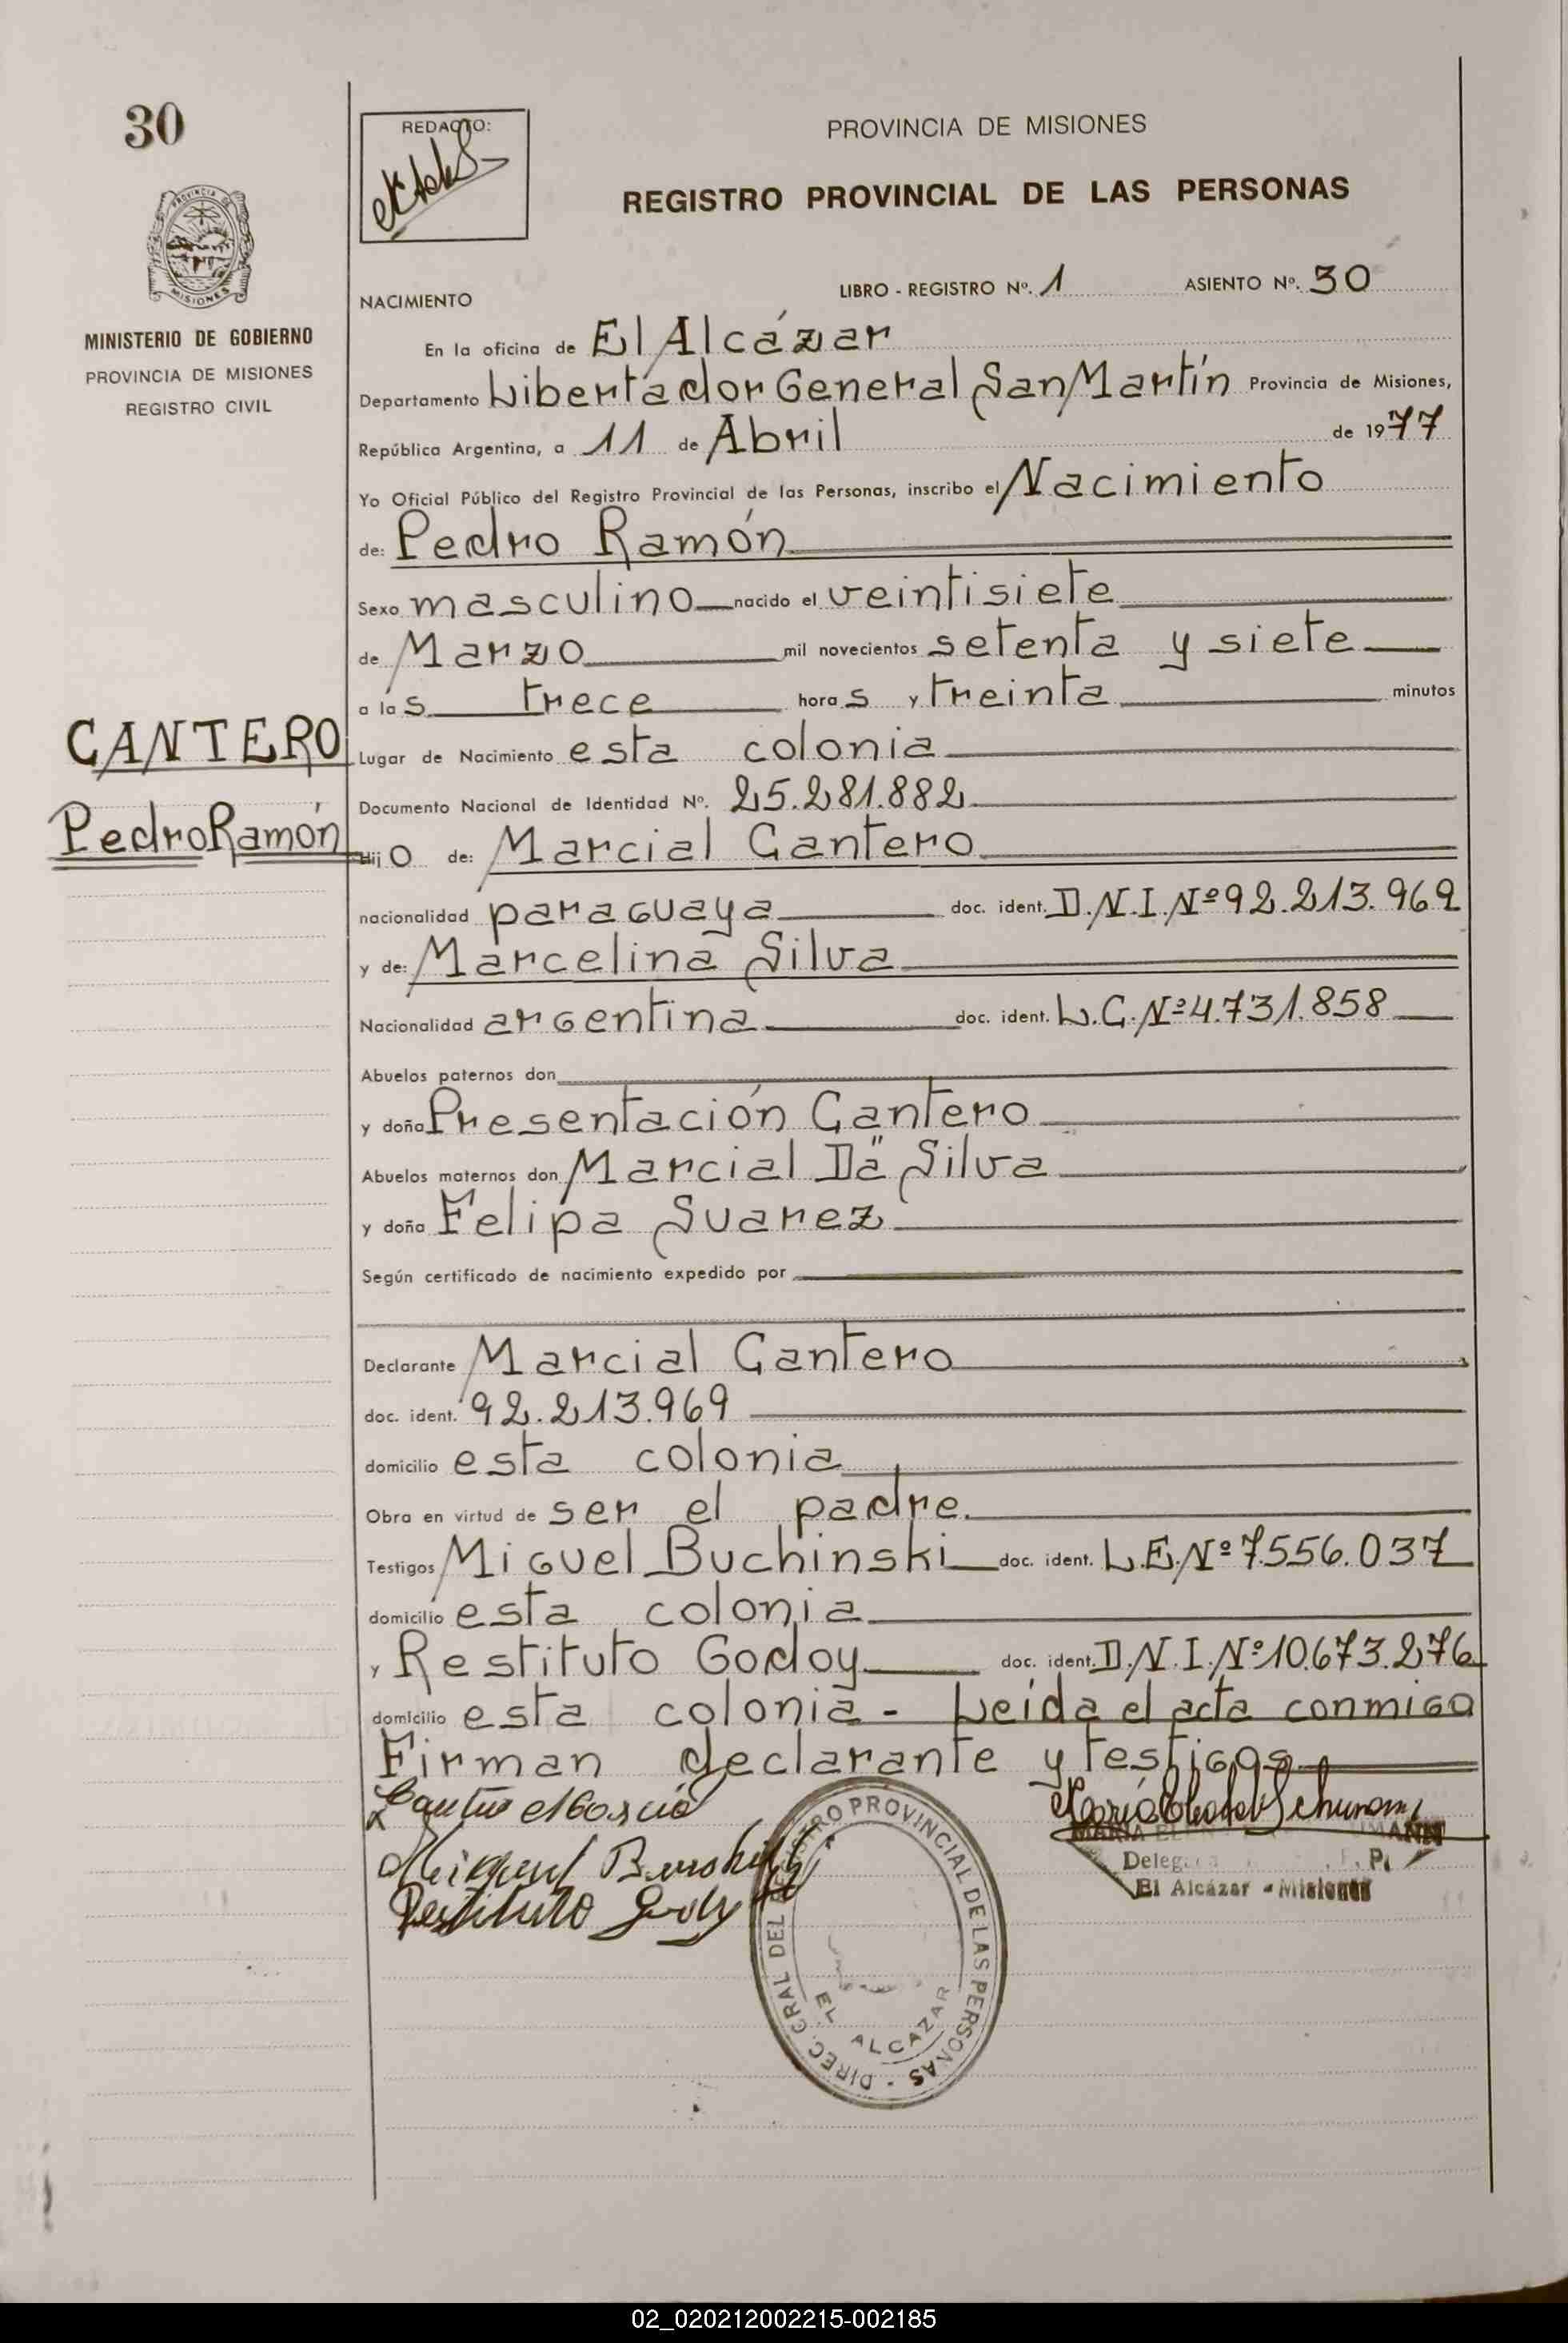 30
REDACTO:
PROVINCIA DE MISIONES
REGISTRO PROVINCIAL DE LAS PERSONAS
MISIONES
MINISTERIO DE GOBIERNO
PROVINCIA DE MISIONES
REGISTRO CIVIL
NACIMIENTO LIBRO - REGISTRO Nº. 1 ASIENTO Nº. 30
En la oficina de El Alcázar
Departamento Libertador General San Martín Provincia de Misiones,
República Argentina, a 11 de Abril de 1977
Yo Oficial Público del Registro Provincial de las Personas, inscribo el Nacimiento
de: Pedro Ramón
Sexo masculino nacido el veintisiete
de Marzo mil novecientos setenta y siete
a las trece horas y treinta minutos
CANTERO
Pedro Ramón
Lugar de Nacimiento esta colonia
Documento Nacional de Identidad Nº. 25.281.882
Hijo de: Marcial Cantero
nacionalidad paraguaya doc. ident. D.N.I.Nº92.213.969
y de: Marcelina Silva
Nacionalidad argentina doc. ident. L.C.Nº4.731.858
Abuelos paternos don
y doña Presentación Cantero
Abuelos maternos don Marcial Da Silva
y doña Felipa Suarez
Según certificado de nacimiento expedido por
Declarante Marcial Cantero
doc. ident. 92.213.969
domicilio esta colonia
Obra en virtud de ser el padre.
Testigos Miguel Buchinski doc. ident. L.E.Nº7.556.037
domicilio esta colonia
y Restituto Godoy doc. ident. D.N.I.Nº10.673.276
domicilio esta colonia - Leida el acta conmigo
Firman declarante y testigos
Restituto Godoy
DIREC. GRAL DEL REGISTRO PROVINCIAL DE LAS PERSONAS -
EL ALCAZAR
MARIA
El Alcázar - Misiones
02_020212002215-002185